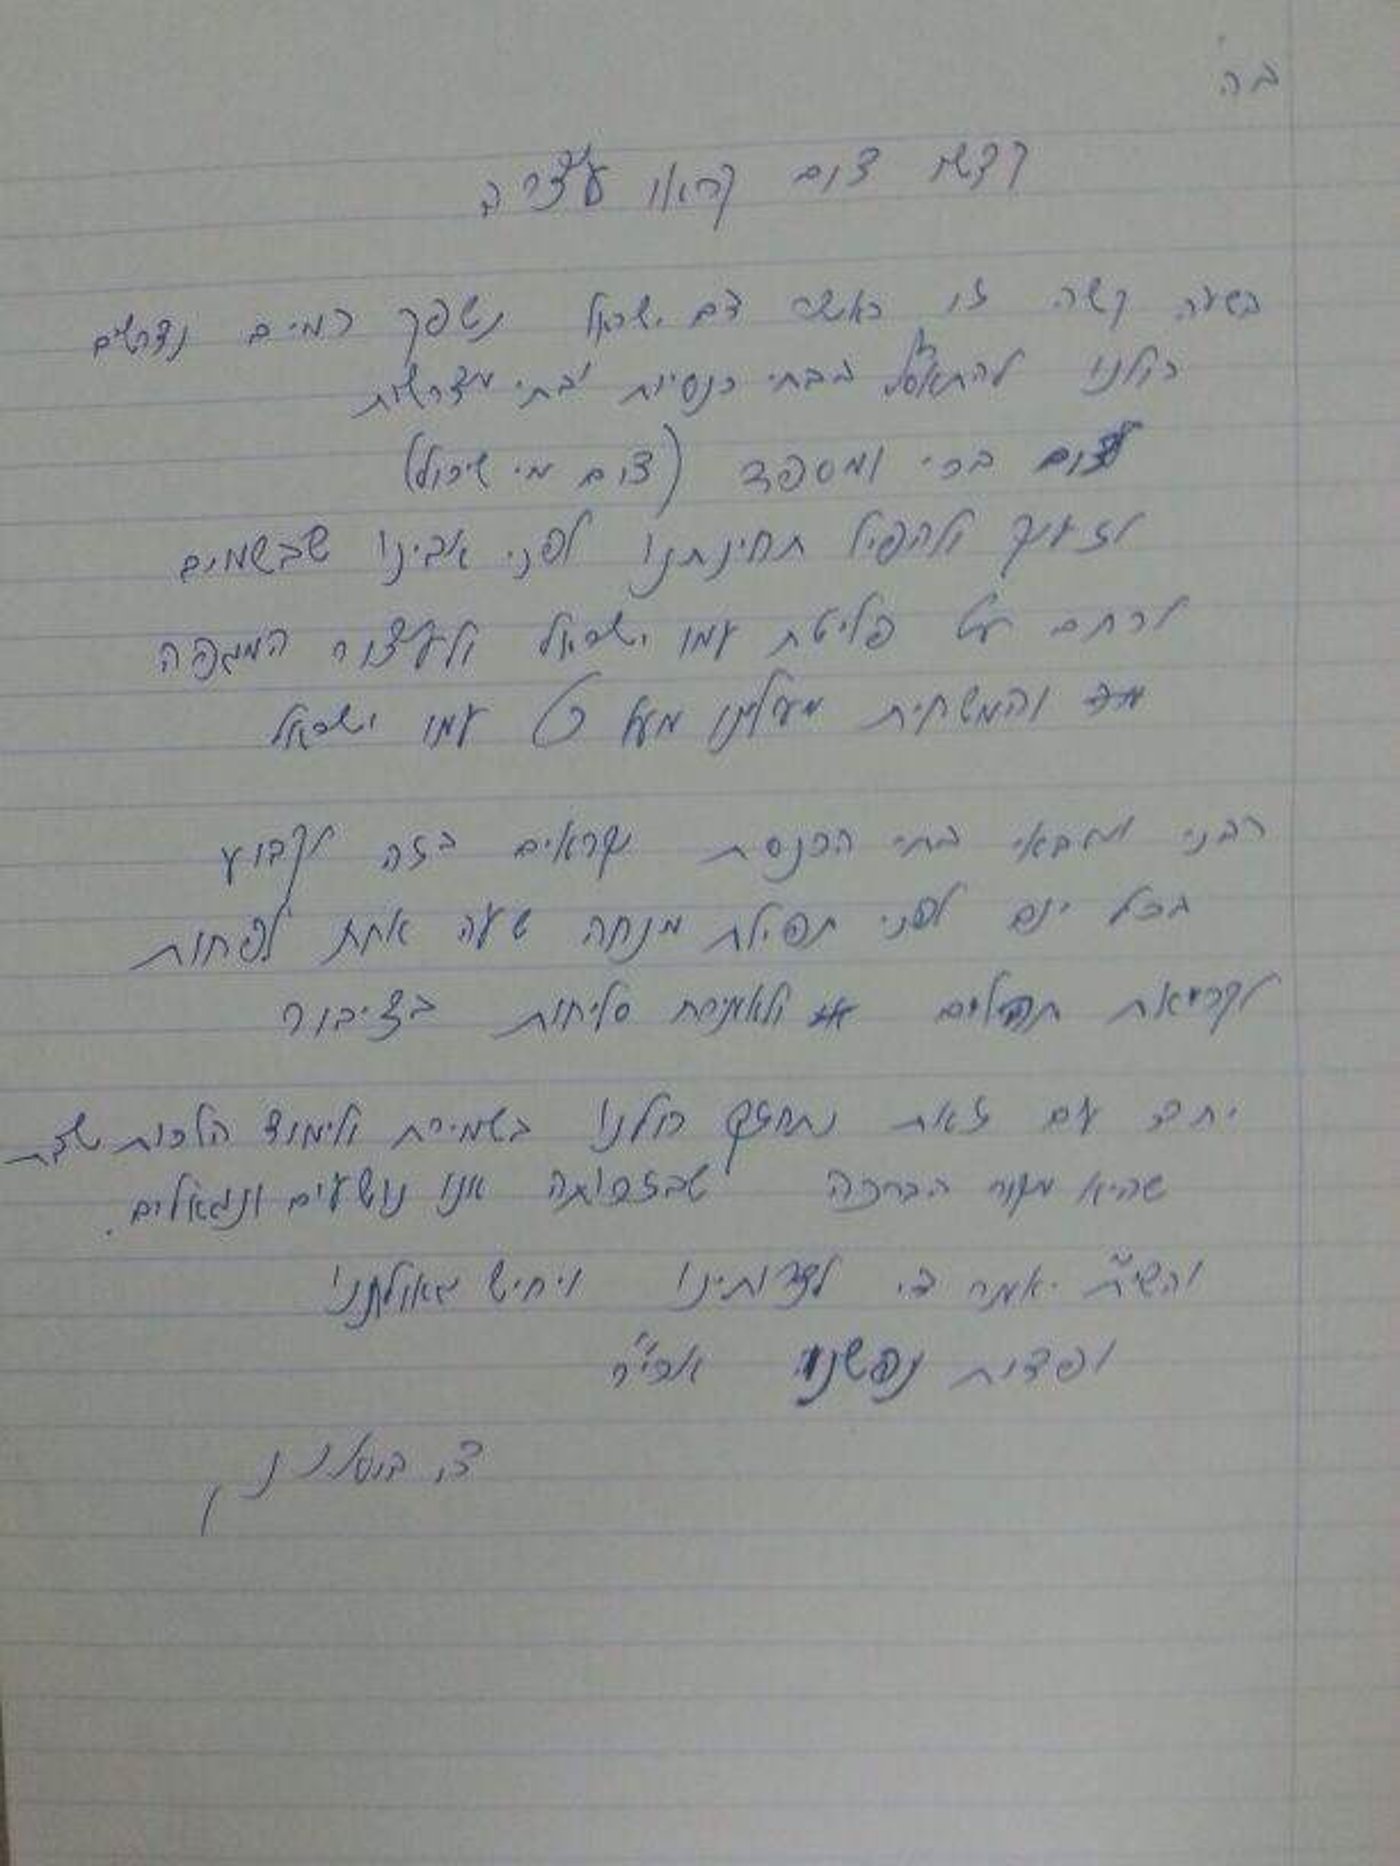 בה'
קדשו צום קראו עצרה
בשעה קשה זו כאשר דם ישראל נשפך כמים נדרשים
כולנו להתאסף בבתי כנסיות ובתי מדרשות
לצום בכי ומספד (צום מי שיכול)
לזעוק ולהפיל תחינתנו לפני אבינו שבשמים
לרחם על פליטת עמו ישראל ולעצור המגפה
והמשחית מעלינו מעל כל עמו ישראל
רבני וגבאי בתי הכנסת נקראים בזה לקבוע
בכל יום לפני תפילת מנחה שעה אחת לפחות
לקריאת תהילים ולאמירת סליחות בציבור
יחד עם זאת נתחזק כולנו בשמירת ולימוד הלכות שבת
שהיא מקור הברכה שבזכותה אנו נושעים ונגאלים.
והשי"ת יאמר די לצרותינו ויחיש גאולתנו
ופדות נפשנו אכי"ר